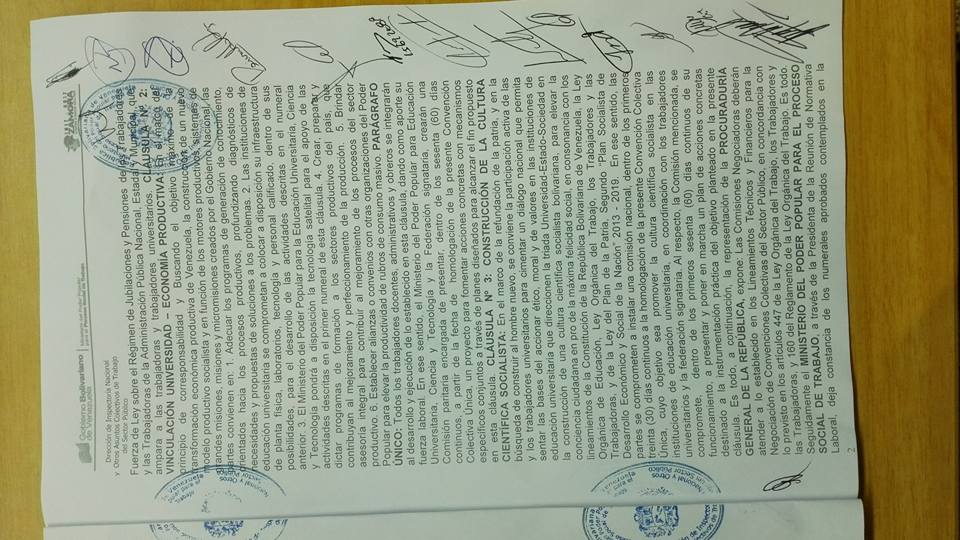 Gobierno Bolivariano de Venezuela
Dirección de Inspectoría Nacional
y Otros Asuntos Colectivos de Trabajo
del Sector Público
ZAMORA
Fuerza de Ley sobre el Régimen de Jubilaciones y Pensiones de los Trabajadores
y las Trabajadoras de la Administración Pública Nacional, Estadal y Municipal, que
ampara a las trabajadoras y trabajadores universitarios. CLÁUSULA Nº 2:
VINCULACIÓN UNIVERSIDAD – ECONOMÍA PRODUCTIVA: En el marco del
principio de corresponsabilidad y Buscando el objetivo máximo de la
transformación económica productiva de Venezuela, la construcción de un nuevo
modelo productivo socialista y en función de los motores productivos, sistemas de
grandes misiones, misiones y micromisiones creados por el gobierno Nacional, las
partes convienen en: 1. Adecuar los programas de generación de conocimiento,
orientados hacia los procesos productivos, profundizando diagnósticos de
necesidades y propuestas de soluciones a los problemas. 2. Las instituciones de
educación universitaria se comprometan a colocar a disposición su infraestructura
de planta física, laboratorios, tecnología y personal calificado, dentro de sus
posibilidades, para el desarrollo de las actividades descritas en el numeral
anterior. 3. El Ministerio del Poder Popular para la Educación Universitaria, Ciencia
y Tecnología pondrá a disposición la tecnología satelital para el apoyo de las
actividades descritas en el primer numeral de esta cláusula. 4. Crear, preparar y
dictar programas de formación a los sectores productivos del país, que
contribuyan al mejoramiento y perfeccionamiento de la producción. 5. Brindar
asesoría integral para contribuir al mejoramiento de los procesos del sector
productivo. 6. Establecer alianzas o convenios con otras organizaciones del Poder
Popular para elevar la productividad de rubros de consumo masivo. PARÁGRAFO
ÚNICO: Todos los trabajadores docentes, administrativos y obreros se integrarán
al desarrollo y ejecución de lo establecido en esta cláusula, dando como aporte su
fuerza laboral. En ese sentido, el Ministerio del Poder Popular para Educación
Universitaria, Ciencia y Tecnología y la Federación signataria, crearán una
Comisión paritaria encargada de presentar, dentro de los sesenta (60) días
continuos, a partir de la fecha de homologación de la presente Convención
Colectiva Única, un proyecto para fomentar acciones concretas con mecanismos
específicos conjuntos a través de planes diseñados para alcanzar el fin propuesto
en esta cláusula. CLÁUSULA Nº 3: CONSTRUCCIÓN DE LA CULTURA
CIENTÍFICA SOCIALISTA: En el marco de la refundación de la patria, y en la
búsqueda de construir al hombre nuevo, se conviene la participación activa de las
y los trabajadores universitarios para cimentar un dialogo nacional que permita
sentar las bases del accionar ético, moral y de valores en las instituciones de
educación universitaria que direccionen la triada Universidad-Estado-Sociedad en
la construcción de una cultura científica socialista bolivariana, para elevar la
conciencia ciudadana en pro de la máxima felicidad social, en consonancia con los
lineamientos de la Constitución de la República Bolivariana de Venezuela, la Ley
Orgánica de Educación, Ley Orgánica del Trabajo, los Trabajadores y las
Trabajadoras, y la Ley del Plan de la Patria, Segundo "Plan Socialista de
Desarrollo Económico y Social de la Nación" 2013 – 2019. En ese sentido, las
partes se comprometen a instalar una comisión nacional, dentro de los primeros
treinta (30) días continuos a la homologación de la presente Convención Colectiva
Única, cuyo objetivo sea promover la cultura científica socialista en las
instituciones de educación universitaria, en coordinación con los trabajadores
universitarios y la federación signataria. Al respecto, la Comisión mencionada, se
compromete, dentro de los primeros sesenta (60) días continuos de su
funcionamiento, a presentar y poner en marcha un plan de acciones concretas
destinado a la instrumentación práctica del objetivo planteado en la presente
cláusula. Es todo. A continuación, la representación de la PROCURADURÍA
GENERAL DE LA REPÚBLICA, expone: Las Comisiones Negociadoras deberán
atender a lo establecido en los Lineamientos Técnicos y Financieros para la
Negociación de Convenciones Colectivas del Sector Público, en concordancia con
lo previsto en los artículos 447 de la Ley Orgánica del Trabajo, los Trabajadores y
las Trabajadoras, y 160 del Reglamento de la Ley Orgánica del Trabajo. Es todo.
Seguidamente el MINISTERIO DEL PODER POPULAR PARA EL PROCESO
SOCIAL DE TRABAJO, a través de la Presidenta de la Reunión de Normativa
Laboral, deja constancia de los numerales aprobados contemplados en la
2